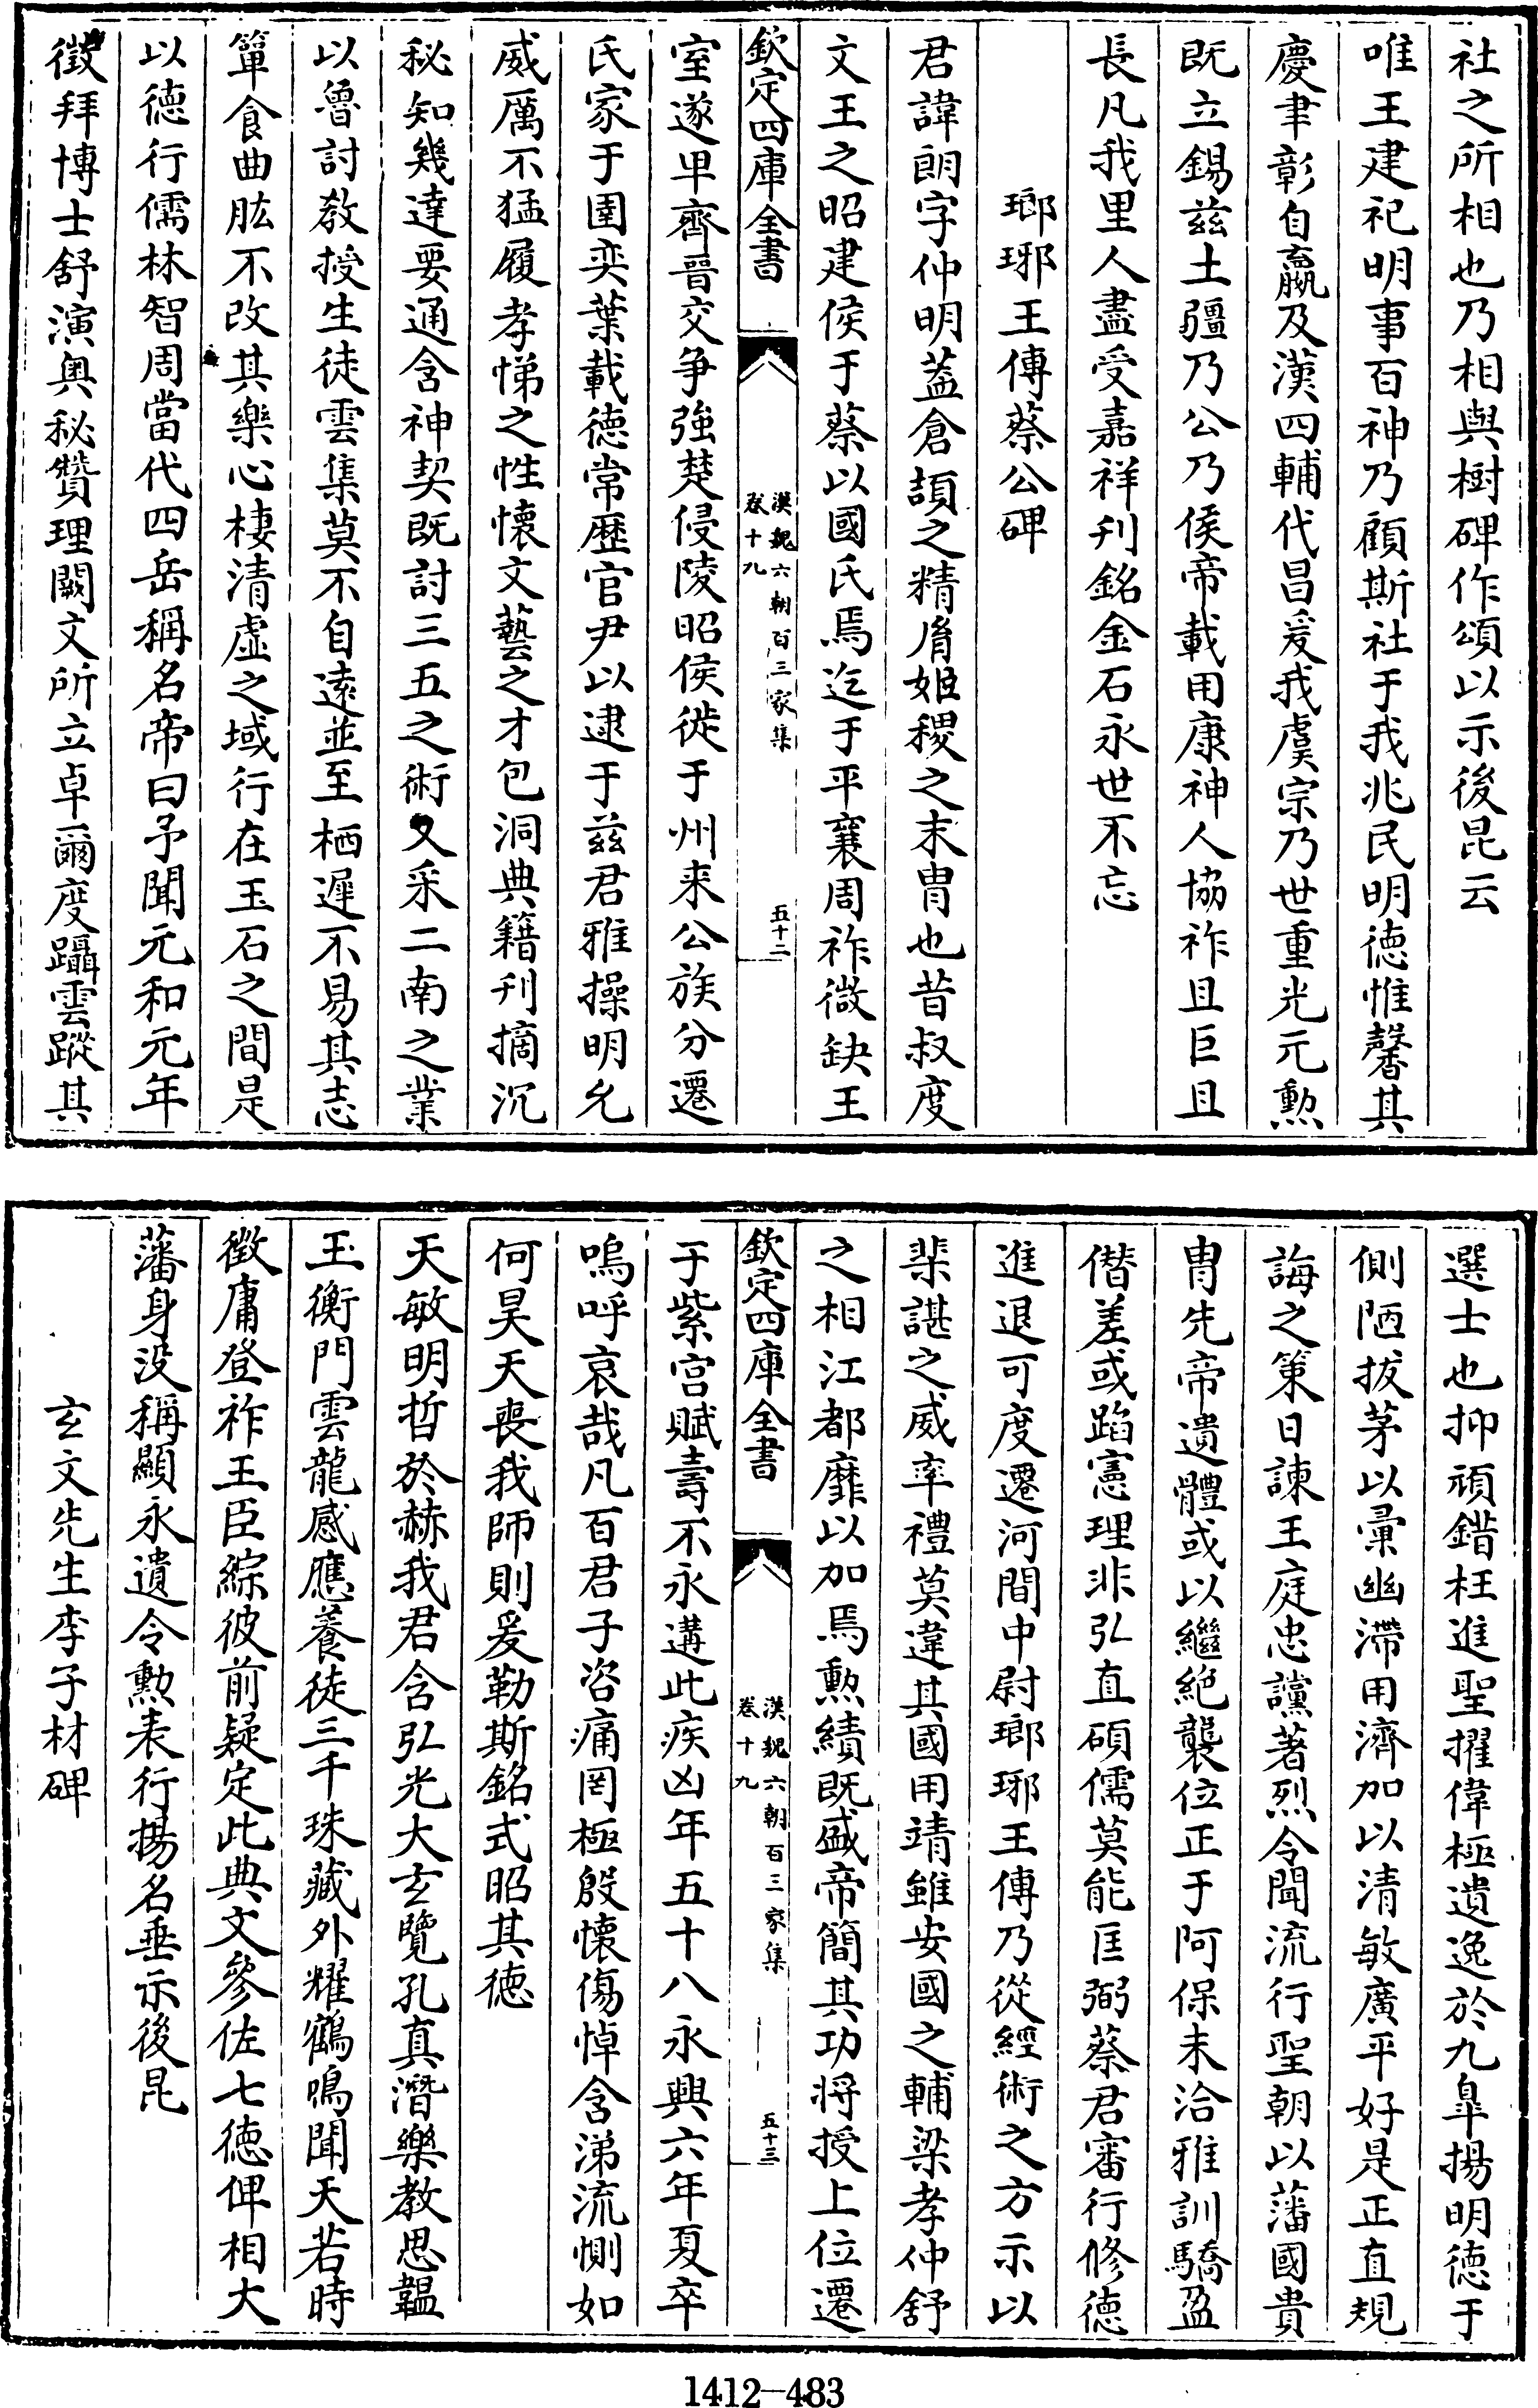 社之所相也乃相與樹碑作頌以示後昆云
唯王建祀明事百神乃顧斯社于我兆民明德惟馨其
慶聿彰自嬴及漢四輔代昌爰我虞宗乃世重光元勲
既立錫兹土疆乃公乃侯帝載用康神人協祚且巨且
長凡我里人盡受嘉祥刋銘金石永世不忘
瑯琊王傅蔡公碑
君諱朗字仲明蓋倉頡之精胤姬稷之末胄也昔叔度
文王之昭建侯于蔡以國氏焉迄于平襄周祚微缺王
欽定四庫全書
漢魏六朝百三家集
卷十九
五十二
室遂卑齊晉交争強楚侵陵昭侯徙于州来公族分遷
氏家于圉奕葉載德常歴官尹以逮于兹君雅操明允
威厲不猛履孝悌之性懷文藝之才包洞典籍刋摘沉
秘知幾達要通含神契既討三五之術又采二南之業
以魯討教授生徒雲集莫不自遠並至栖遲不易其志
簞食曲肱不改其樂心棲清虚之域行在玉石之間是
以德行儒林智周當代四岳稱名帝曰予聞元和元年
徵拜博士舒演奥秘贊理闕文所立卓爾度躡雲蹤其
選士也抑頑錯枉進聖擢偉極遺逸於九臯揚明德于
側陋拔茅以彚幽滯用濟加以清敏廣平好是正直規
誨之策日諫王庭忠讜著烈令聞流行聖朝以藩國貴
胄先帝遺體或以繼絶襲位正于阿保未洽雅訓驕盈
僭差或蹈憲理非弘直碩儒莫能匡弼蔡君審行修德
進退可度遷河間中尉瑯琊王傅乃從經術之方示以
棐諶之威率禮莫違其國用靖雖安國之輔梁孝仲舒
之相江都靡以加焉勲績既盛帝簡其功将授上位遷
欽定四庫全書
漢魏六朝百三家集
卷十九
五十三
于紫宫賦壽不永遘此疾凶年五十八永興六年夏卒
嗚呼哀哉凡百君子咨痛罔極殷懷傷悼含涕流惻如
何昊天喪我師則爰勒斯銘式昭其德
天敏明哲於赫我君含弘光大玄覽孔真潛樂教思韞
玉衡門雲龍感應養徒三千珠藏外耀鶴鳴聞天若時
徵庸登祚王臣綜彼前疑定此典文參佐七德俾相大
藩身没稱顯永遺令勲表行揚名垂示後昆
玄文先生李子材碑
1412—483